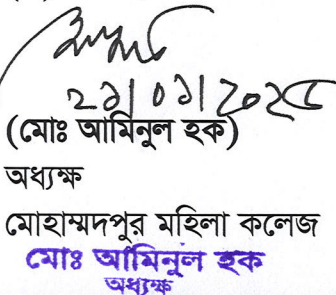 ২১|০১|২০২৫
(মোঃ আমিনুল হক)
অধ্যক্ষ
মোহাম্মদপুর মহিলা কলেজ
মোঃ আমিনুল হক
অধ্যক্ষ